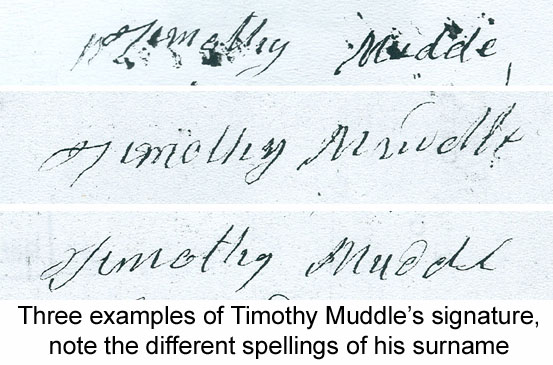 Timothy Mudde
Timothy
Timothy
Three examples of Timothy Muddle's signature,
note the different spellings of his surname